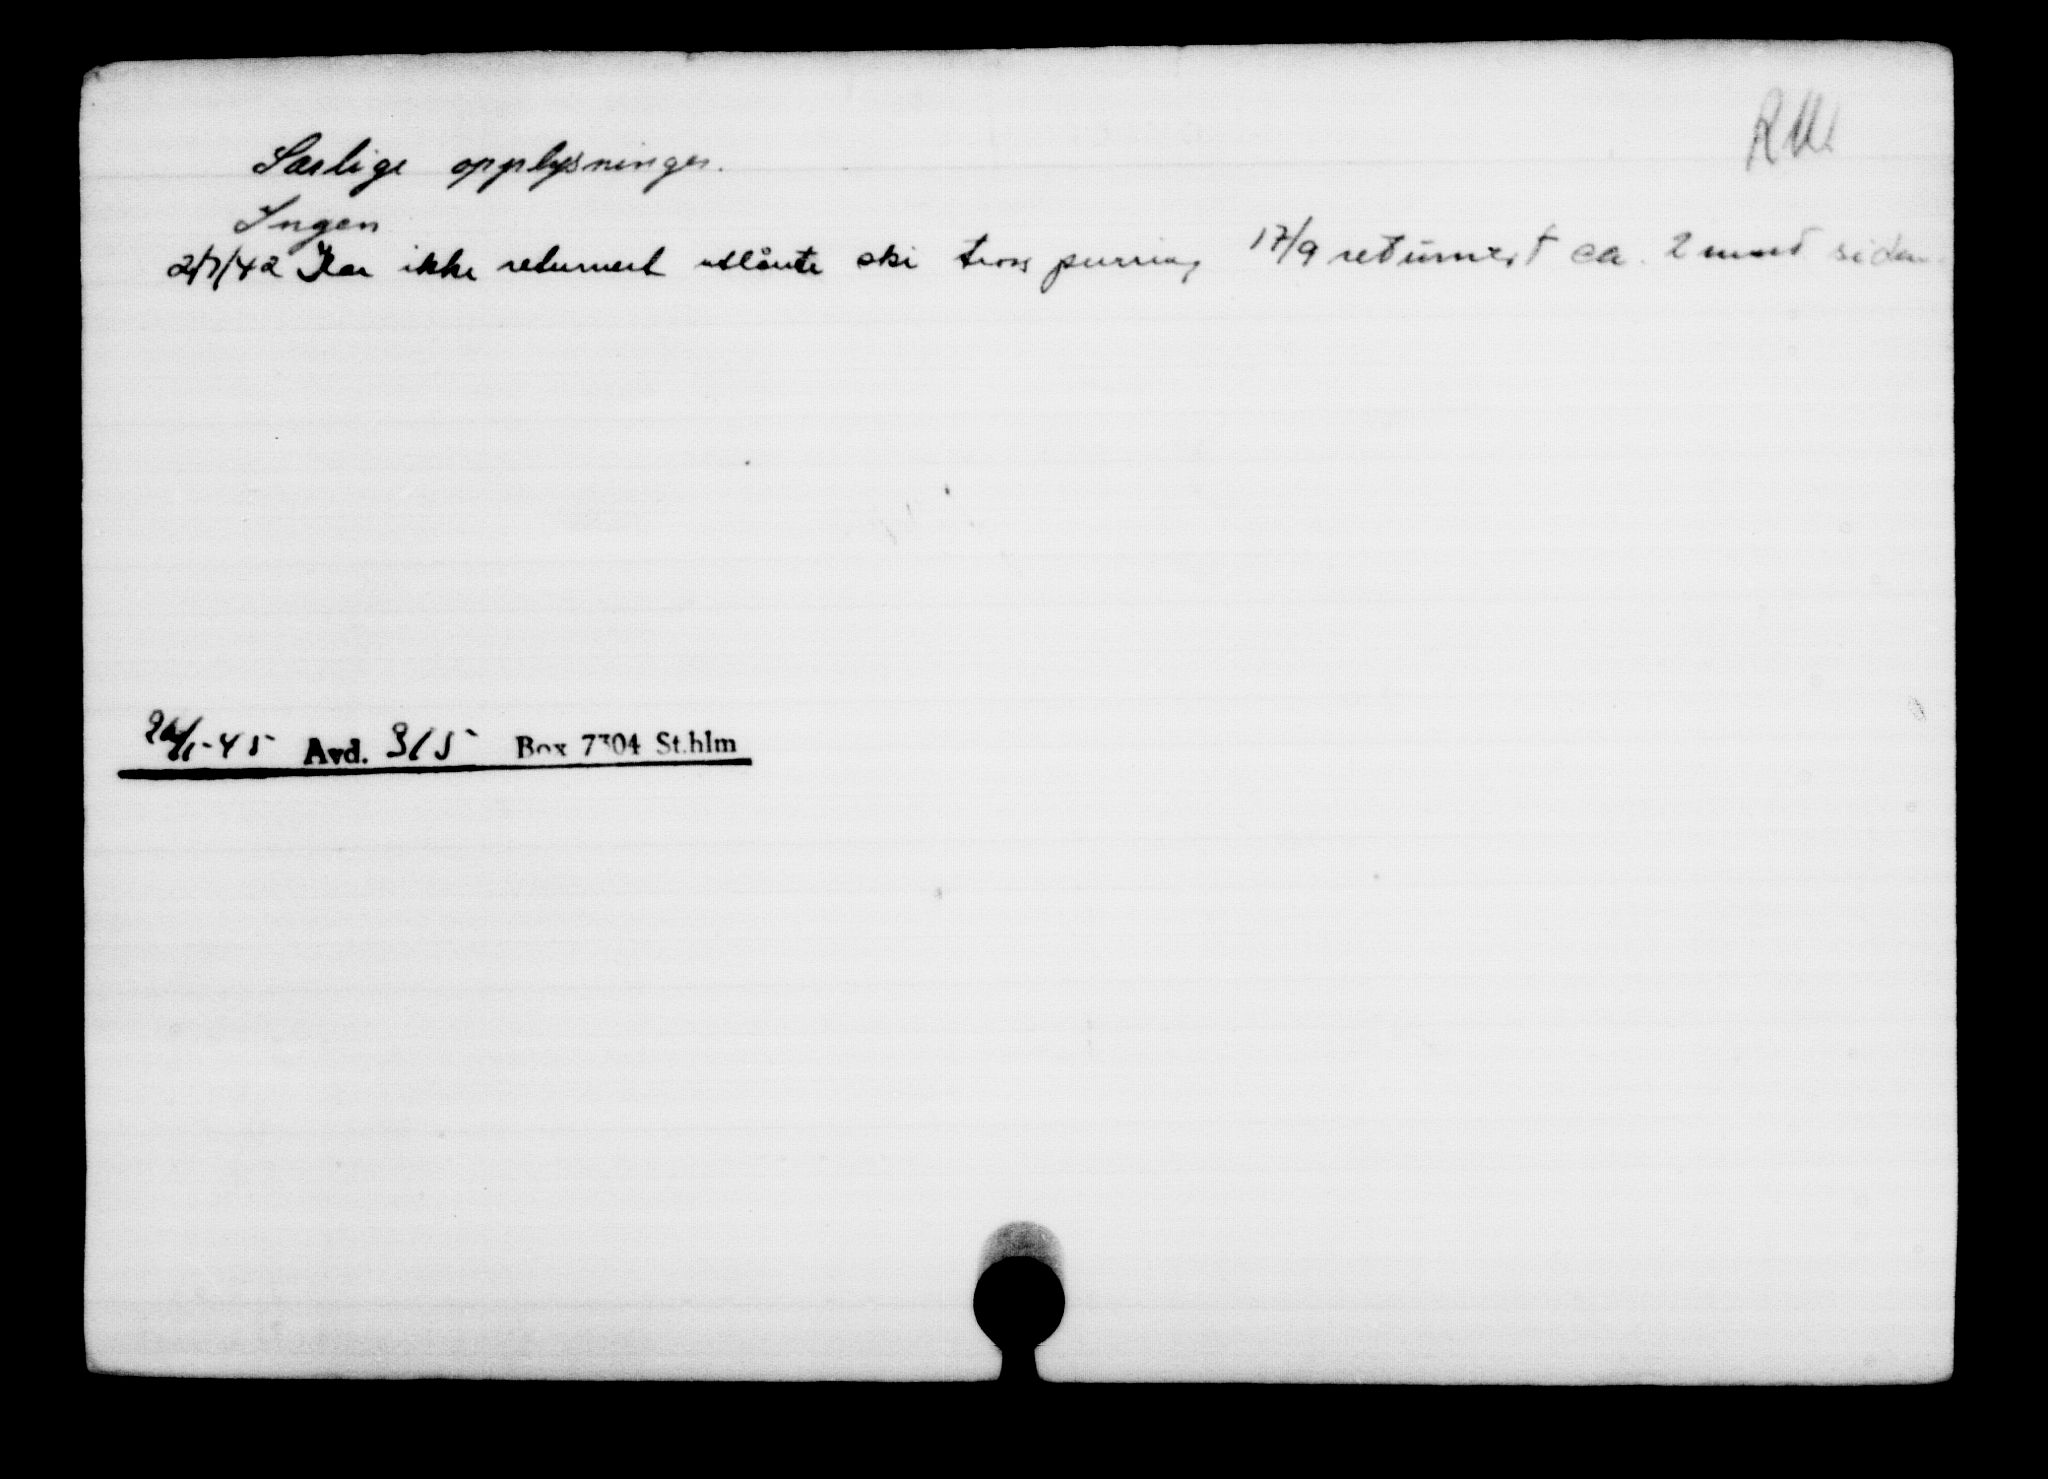 Særlige opplysninger.
Ingen
2/7/42 Har ikke returnert utlånte ski tross purring 17/9 returnert ca. 2 mnd siden
/1-45 Avd. 315 Box 7304 St.hlm